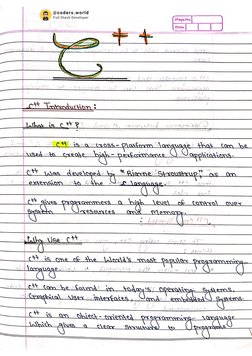 @coders.world
Full Stack Developer
Page No.
Date
C++
C++ Introduction:
What is C++?
C++ is a cross-platform language that can be
used to create high-performance applications.
C++ was developed by "Bjarne Stroustrup", as an
extension to the language.
C++ gives programmers a high level of control over
system resources and memory.
Why Use C++
C++ is one of the World's most popular programming
language.
C++ can be found in today's operating systems,
Graphical User interfaces, and embedded systems.
C++ is an object-oriented programming language
which gives a clear structure to programs